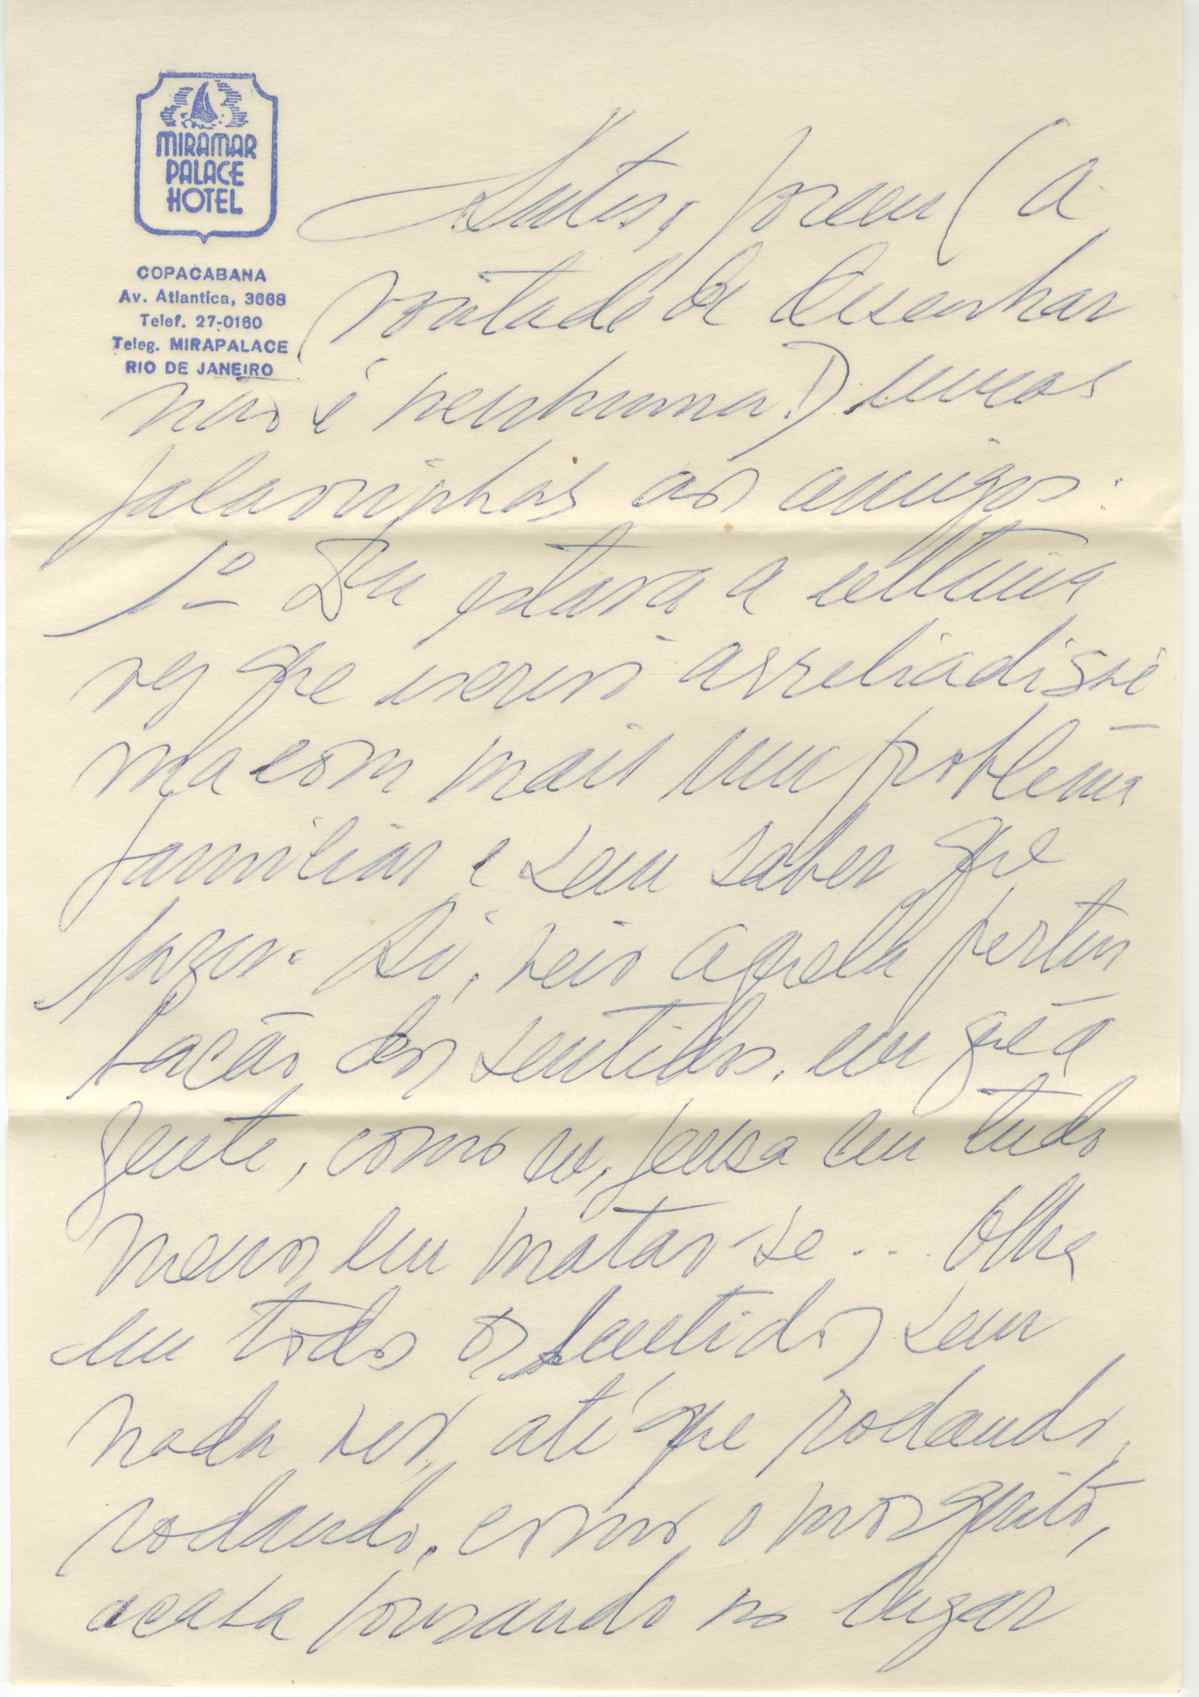 MIRAMAR
PALACE
HOTEL
COPACABANA
Av. Atlantica, 3668
Telef. 27-0160
Teleg. MIRAPALACE
RIO DE JANEIRO
Antes, porém (a
vontade de desenhar
não é nenhuma!) umas
palavrinhas aos amigos:
1º Eu estava a ultima
vez que escrevi arreliadissi
ma com mais um problema
familiar e sem saber que
fazer. Aí, veio aquela pertur
bação dos sentidos, em que a
gente, como eu, pensa em tudo
menos em matar-se... Olha
em todos os sentidos sem
nada ver, até que rodando,
rodando, como o mosquito,
acaba pousando no lugar